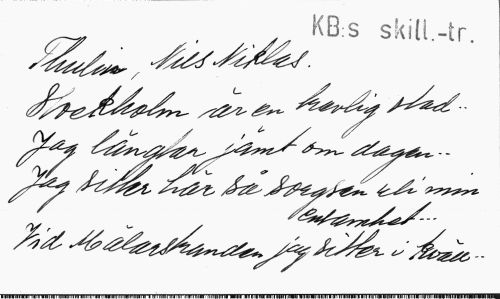 KB:s skill.-tr.
Thulin, Nils Niklas.
Stockholm är en havlig stad..
Jag längtar jämt om dagen..
Jag sitter här så sorgsen uti min
ensamhet...
Vid Mälarstranden jag sitter i kväll..